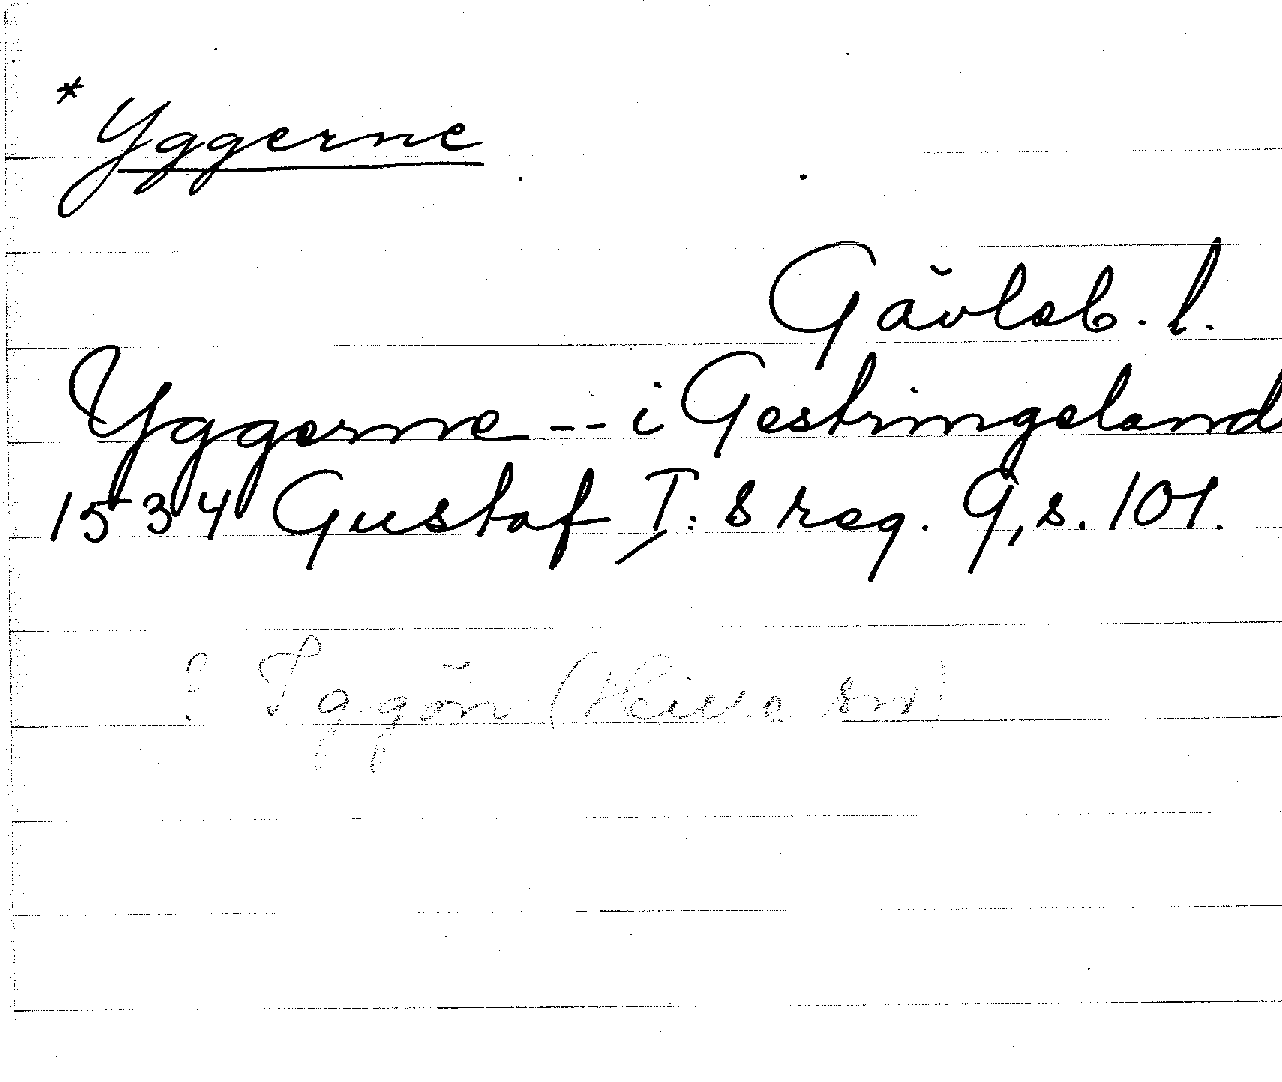 * Yggerne
Gävleb. l.
Yggerne -- i Gestringeland
1534 Gustaf I:s reg. 9, s. 101.
? Iggön (Hille sn)